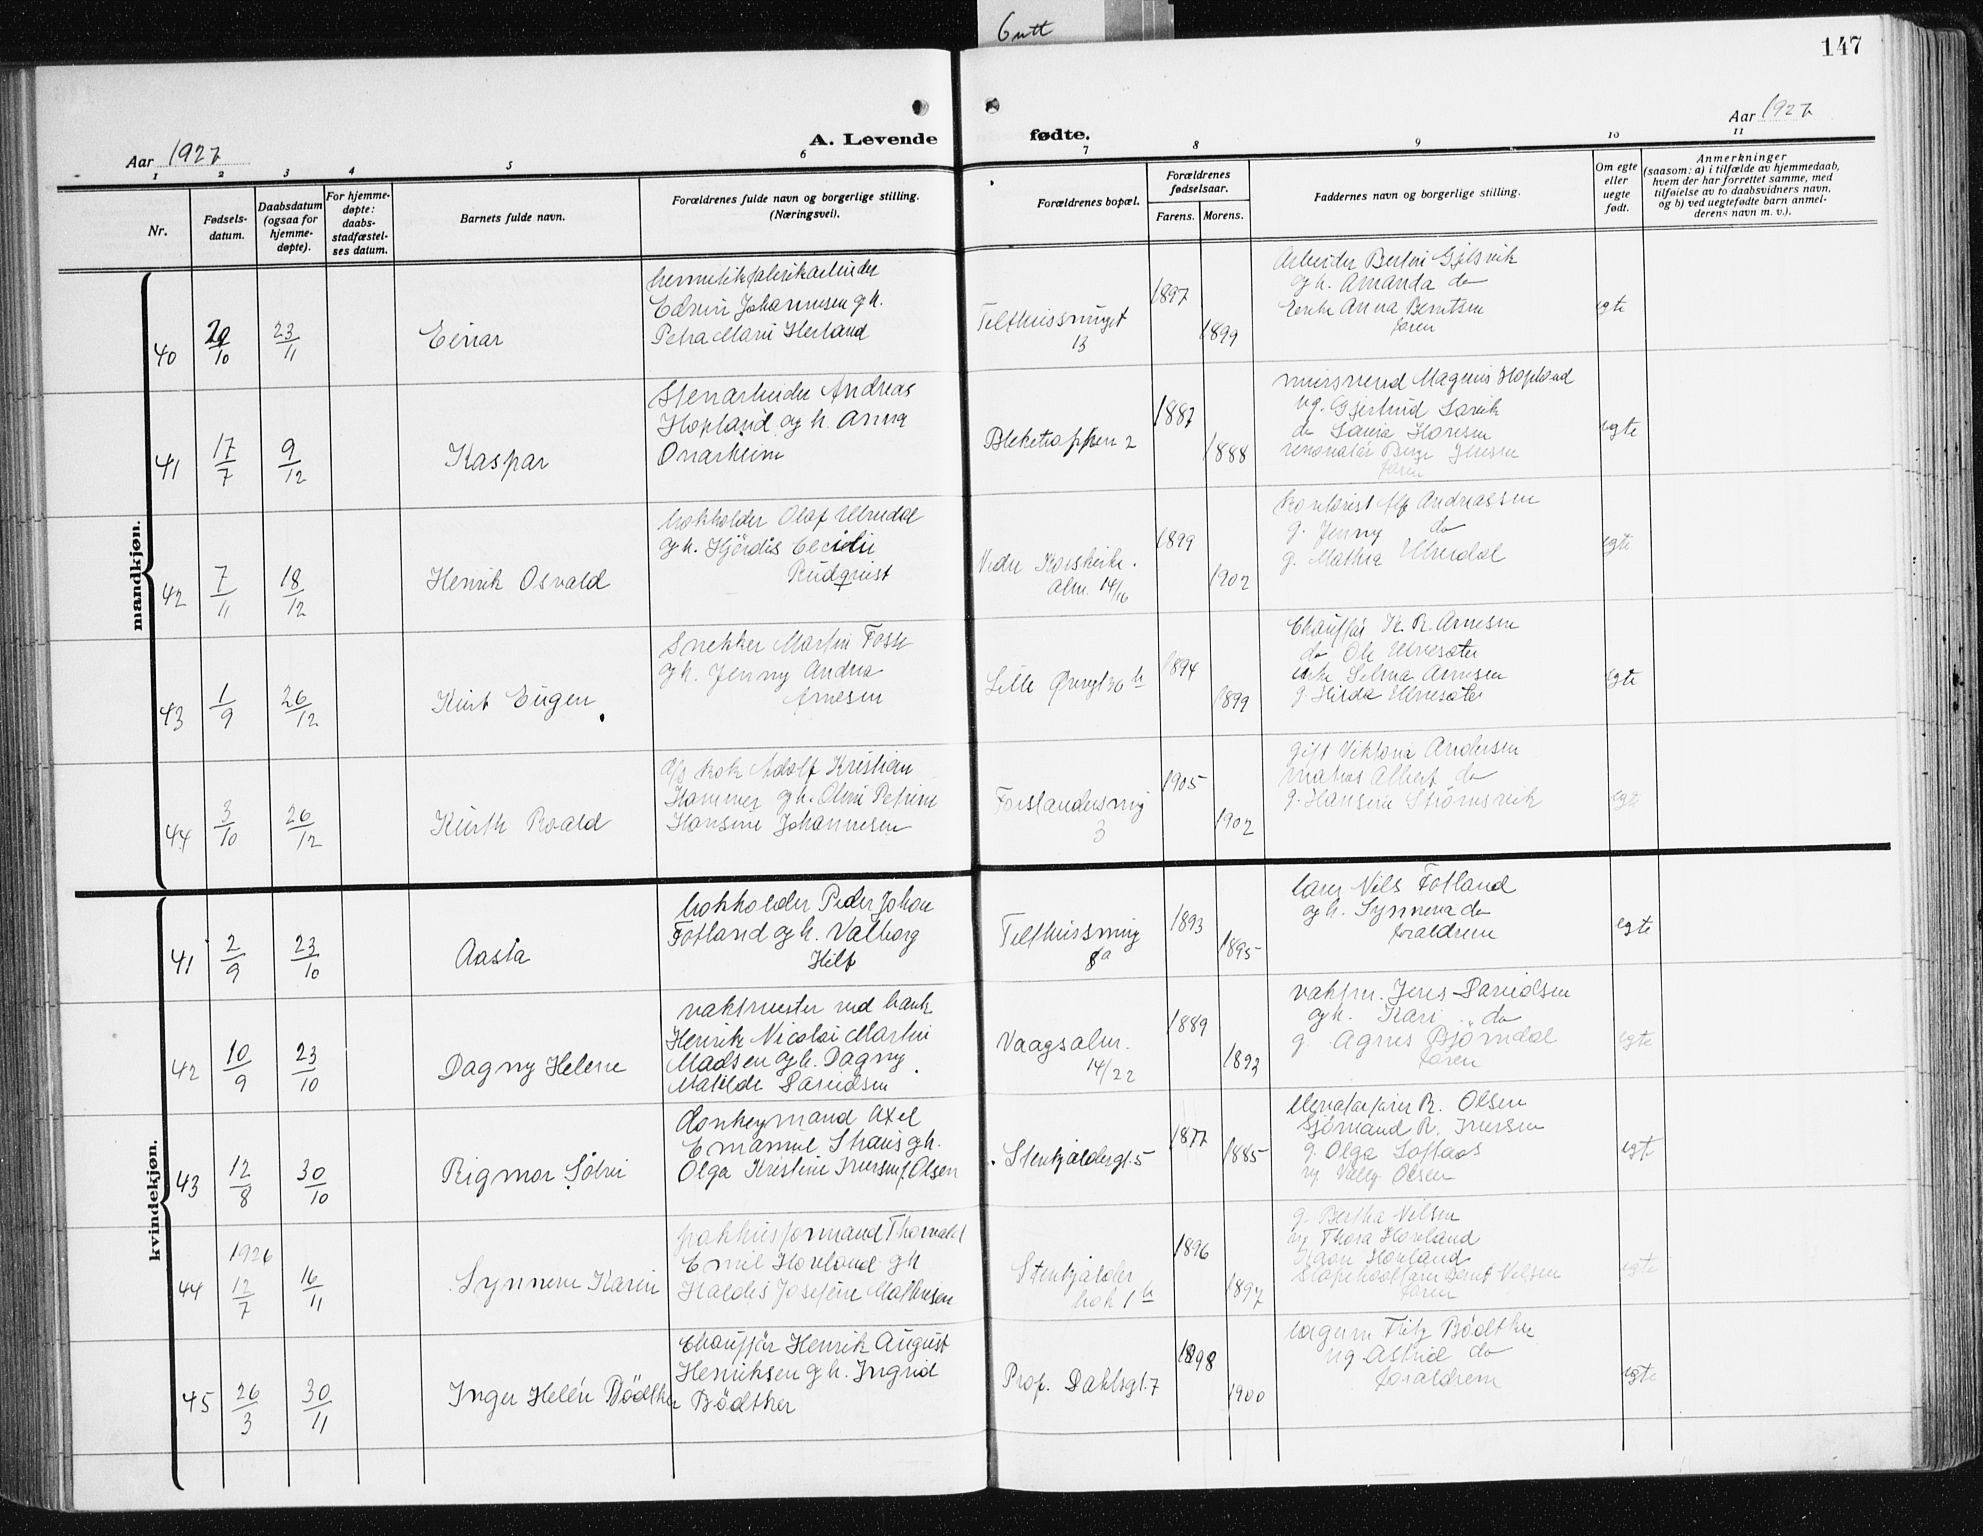 Gutt
147
Aar 1927
A. Levende fødte.
Aar 1927
1 2 3 4 5 6 7 8 9 10 11
Nr.
Fødsels-
datum.
Daabsdatum
(ogsaa for
hjemme-
døpte).
For hjemme-
døpte:
daabs-
stadfæstel-
ses datum.
Barnets fulde navn.
Forældrenes fulde navn og borgerlige stilling.
(Næringsvei).
Forældrenes bopæl.
Forældrenes
fødselsaar.
Farens. Morens.
Faddernes navn og borgerlige stilling.
Om egte
eller
uegte
født.
Anmerkninger
(saasom: a) i tilfælde av hjemmedaab,
hvem der har forrettet samme, med
tilføielse av to daabsvidners navn,
og b) ved uegtefødte barn anmel-
derens navn m. v.).
mandkjøn.
40
20/10
23/11
Einar
hermetikfabrikarbeider
Edvin Johannesen g.h.
Petra Marie Herland
Telthussmuget
13
1897
1899
Arbeider Bertin Gjelsvik
og h. Amanda do
Enke Anna Berntsen
faren
egte
41
17/7
9/12
Kaspar
Stenarbeider Andreas
Hopland og h. Anna
Onarheim
Bleketrappen 2
1887
1888
mursvend Magnus Hopland
ug. Gjertrud
do Hansen
Jensen
faren
egte
42
7/11
18/12
Henrik Osvald
bokholder Olaf Ulvedal
og h. Hjördis Cecilie
Rudqvist
Nedre Korskirke.
alm. 14/16
1899
1902
kontorist Alf Andreassen
g. Jenny do
g. Mathea Ulvedal
egte
43
1/9
26/12
Kurt Eugen
Snekker Martin Foss
g h. Jenny Andrea
Arnesen
Lille Øvregt 30 b
1894
1899
Chauffør K. R. Arnesen
do Ole Ulvesæter
enke Selma Arnesen
g. Hilda Ulvesæter
egte
44
3/10
26/12
Kurth Roald
kok Adolf Kristian
Hammer g h. Olvie Petrine
Hansine Johannesen
Forstandersmug
3
1905
1902
gift Viktoria Andersen
matros Albert do
g. Hansine Strømsvik
egte
kvindekjøn.
41
2/9
23/10
Aasta
bokholder Peder Johan
Fotland og h. Valborg
Hilt
Telthussmug
8a
1893
1895
lærer Nils Fotland
og h. Synneva do
forældrene
egte
42
10/9
23/10
Dagny Helene
vaktmester ved bank
Henrik Nicolai Martin
Madsen og h. Dagny
Matilde Davidsen
Vaagsalm.
14/22
1889
1893
vaktm. Jens Davidsen
og h. Kari do
g. Agnes Bjørndal
faren
egte
43
12/8
30/10
Rigmor Sølvi
donkeymand Axel
Emanuel g h.
Olga Kristine Iversen f. Olsen
Stenkjeldergt. 5
1877
1885
Elevatorfører R. Olsen
Sjømand R. Iversen
g. Olga Softaas
ug. Valley Olsen
egte
44
1926
12/7
16/11
Synneve Karin
pakhusformand Thorvald
Emil Hoveland g h
Haldis Josefine Mathiesen
Stenkjelder
bak 1 b
1896
1897
g. Bertha Nilsen
ug Thora Hoveland
Haon Hoveland
Bernt Nilsen
faren
egte
45
26/3
30/11
Inger Helén Bödtker
Chauffør Henrik August
Henriksen g h. Ingrid
Bödtker
Prof. Dahlsgt. 7
1898
1900
lagerm Fritz Bödtker
ug Astrid do
forældrene
egte